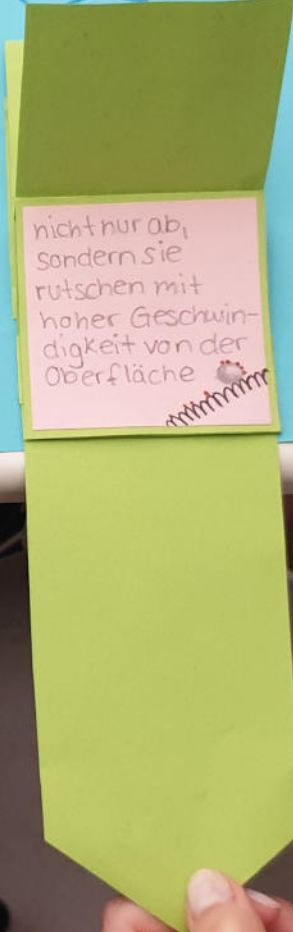 nicht nur ab,
sondern sie
rutschen mit
hoher Geschwin-
digkeit von der
Oberfläche